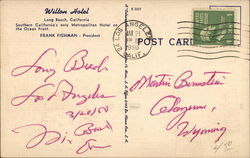 Wilton Hotel
Long Beach, California
Southern California's only Metropolitan Hotel on
the Ocean Front
FRANK FISHMAN : President
POST CARD
LOS ANGELES
CALIF.
1950
Long Beach
Los Angeles
3/20/50
Martin Bernstein
Cheyenne,
Wyoming